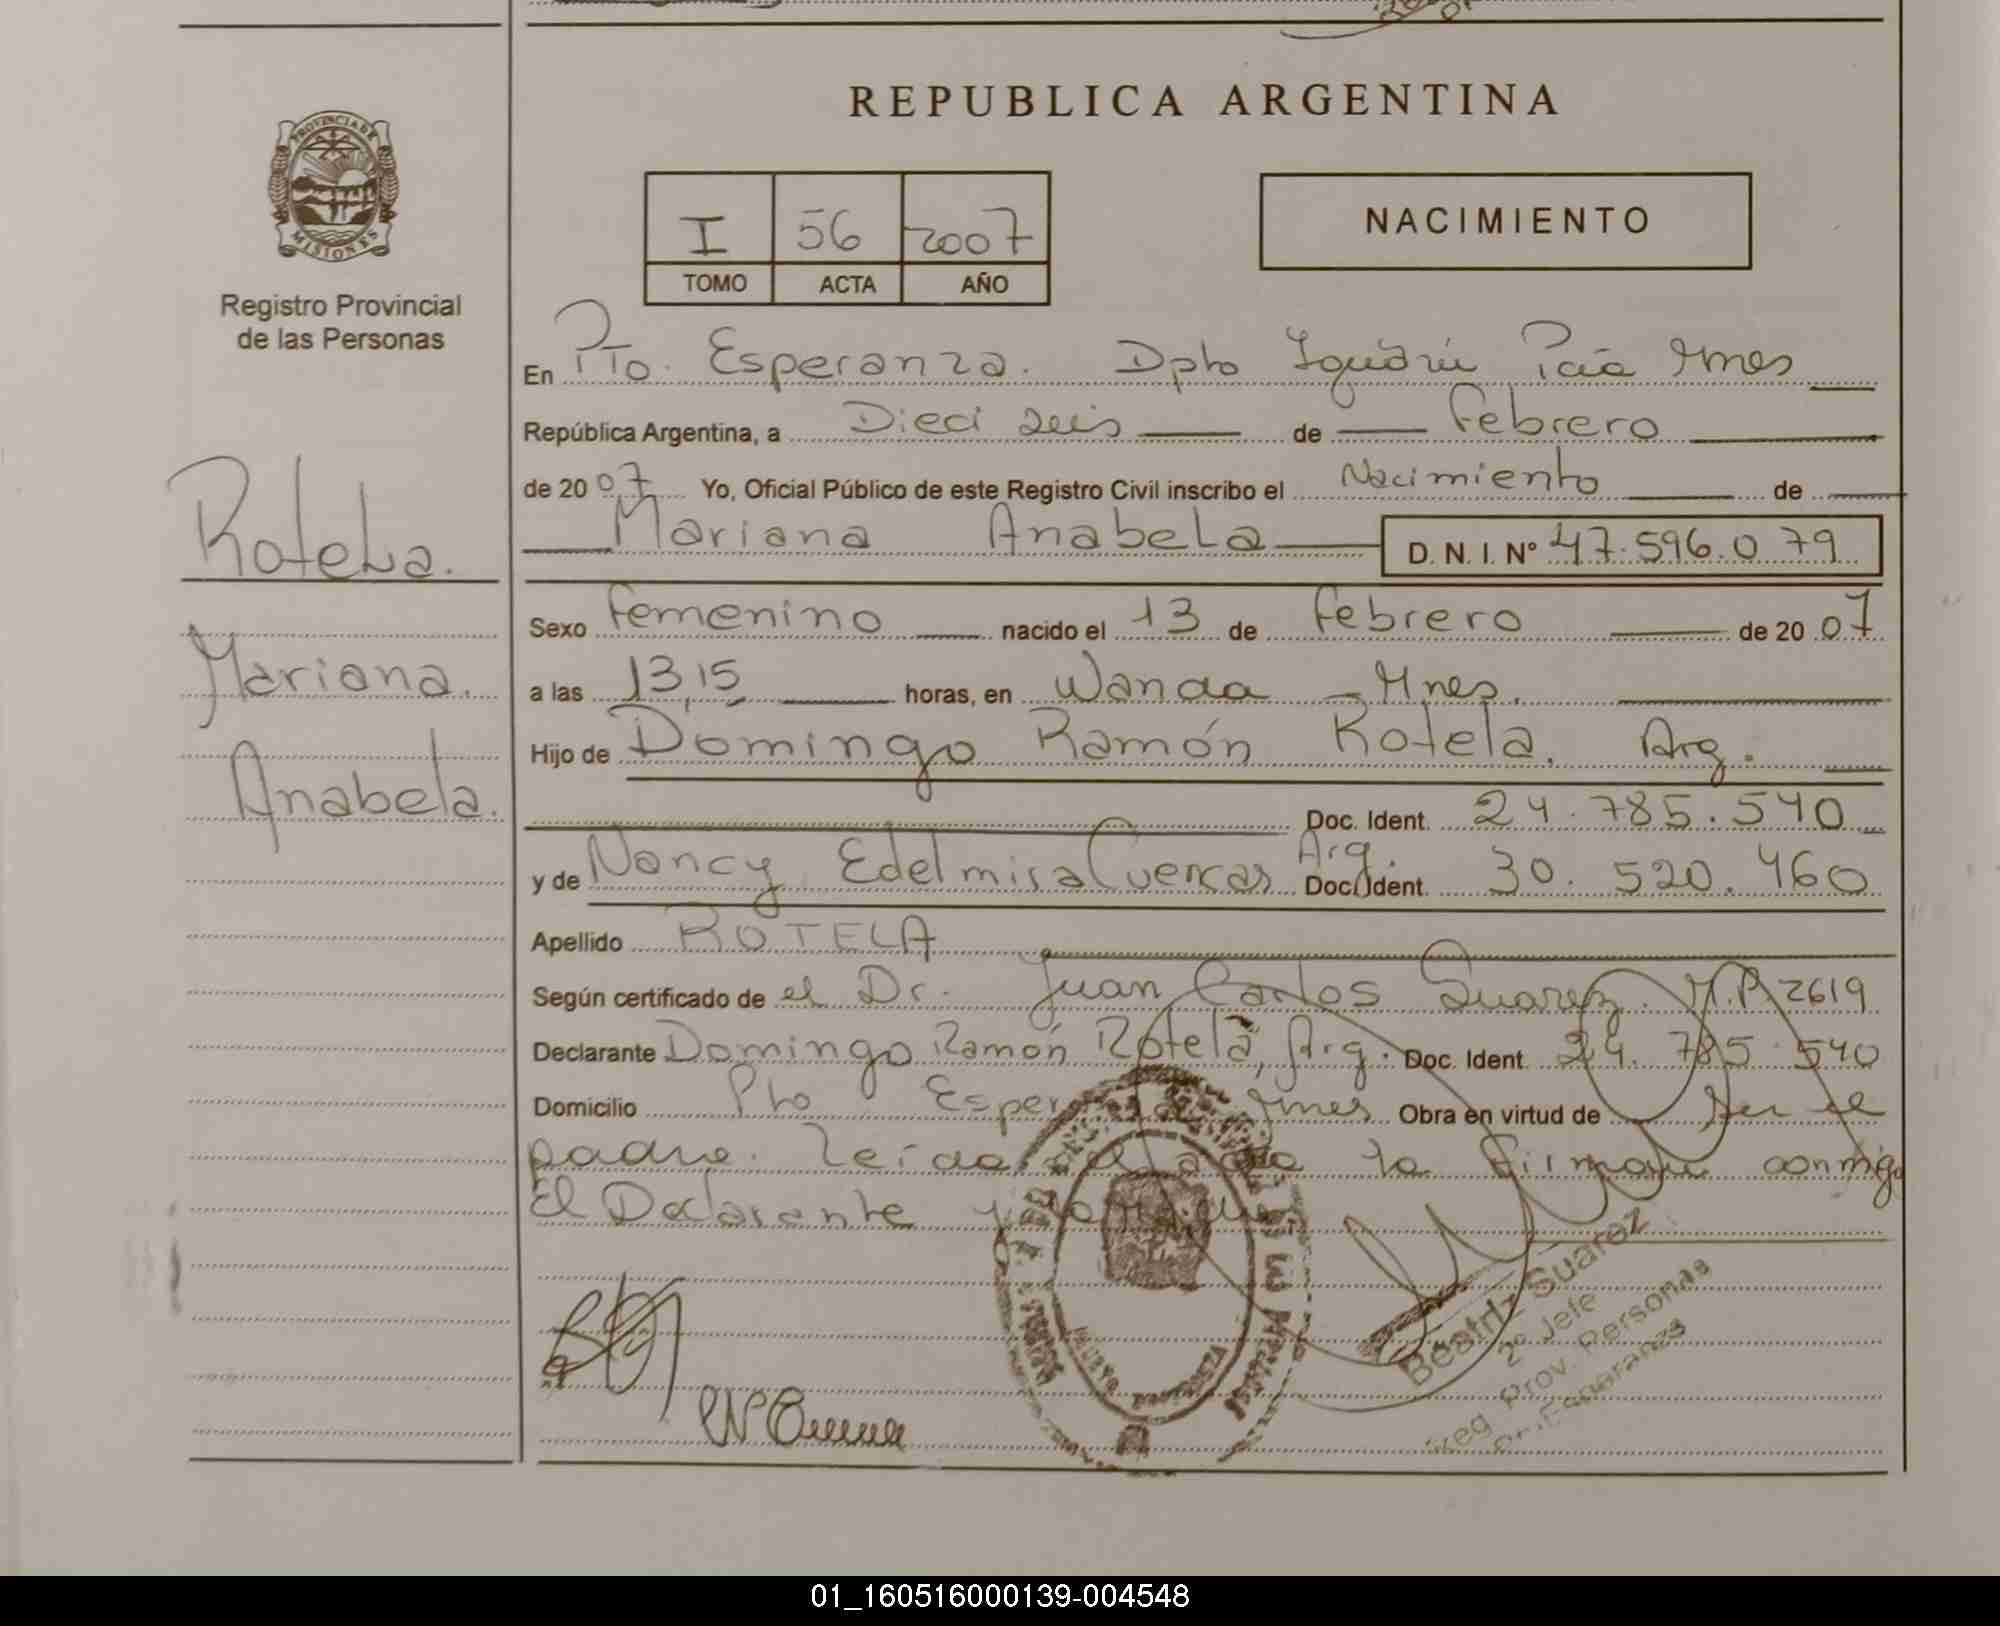 REPUBLICA ARGENTINA
PROVINCIA DE
MISIONES
Registro Provincial
de las Personas
I 56 2007
TOMO ACTA AÑO
NACIMIENTO
En Pto. Esperanza. Dpto Iguazú Pcia Mnes
República Argentina, a Dieci seis de Febrero
de 20 07 Yo, Oficial Público de este Registro Civil inscribo el Nacimiento de
Mariana Anabela D. N. I. Nº 47.596.079
Rotela.
Mariana.
Anabela.
Sexo Femenino nacido el 13 de Febrero de 20 07
a las 13,15 horas, en Wanda - Mnes.
Hijo de Domingo Ramón Rotela. Arg.
Doc. Ident. 24.785.540
y de Nancy Edelmira Cuencas Arg. Doc. Ident. 30.520.460
Apellido ROTELA
Según certificado de el Dr. Juan Carlos Suarez. M.P 2619
Declarante Domingo Ramón Rotela, Arg. Doc. Ident. 24.785.540
Domicilio Pto Esperanza Mnes Obra en virtud de ser el
padre. Leída el acta la firman conmigo
El Declarante y
Beatriz Suarez
2º Jefe
Reg. Prov. Personas
Pto. Esperanza
01_160516000139-004548